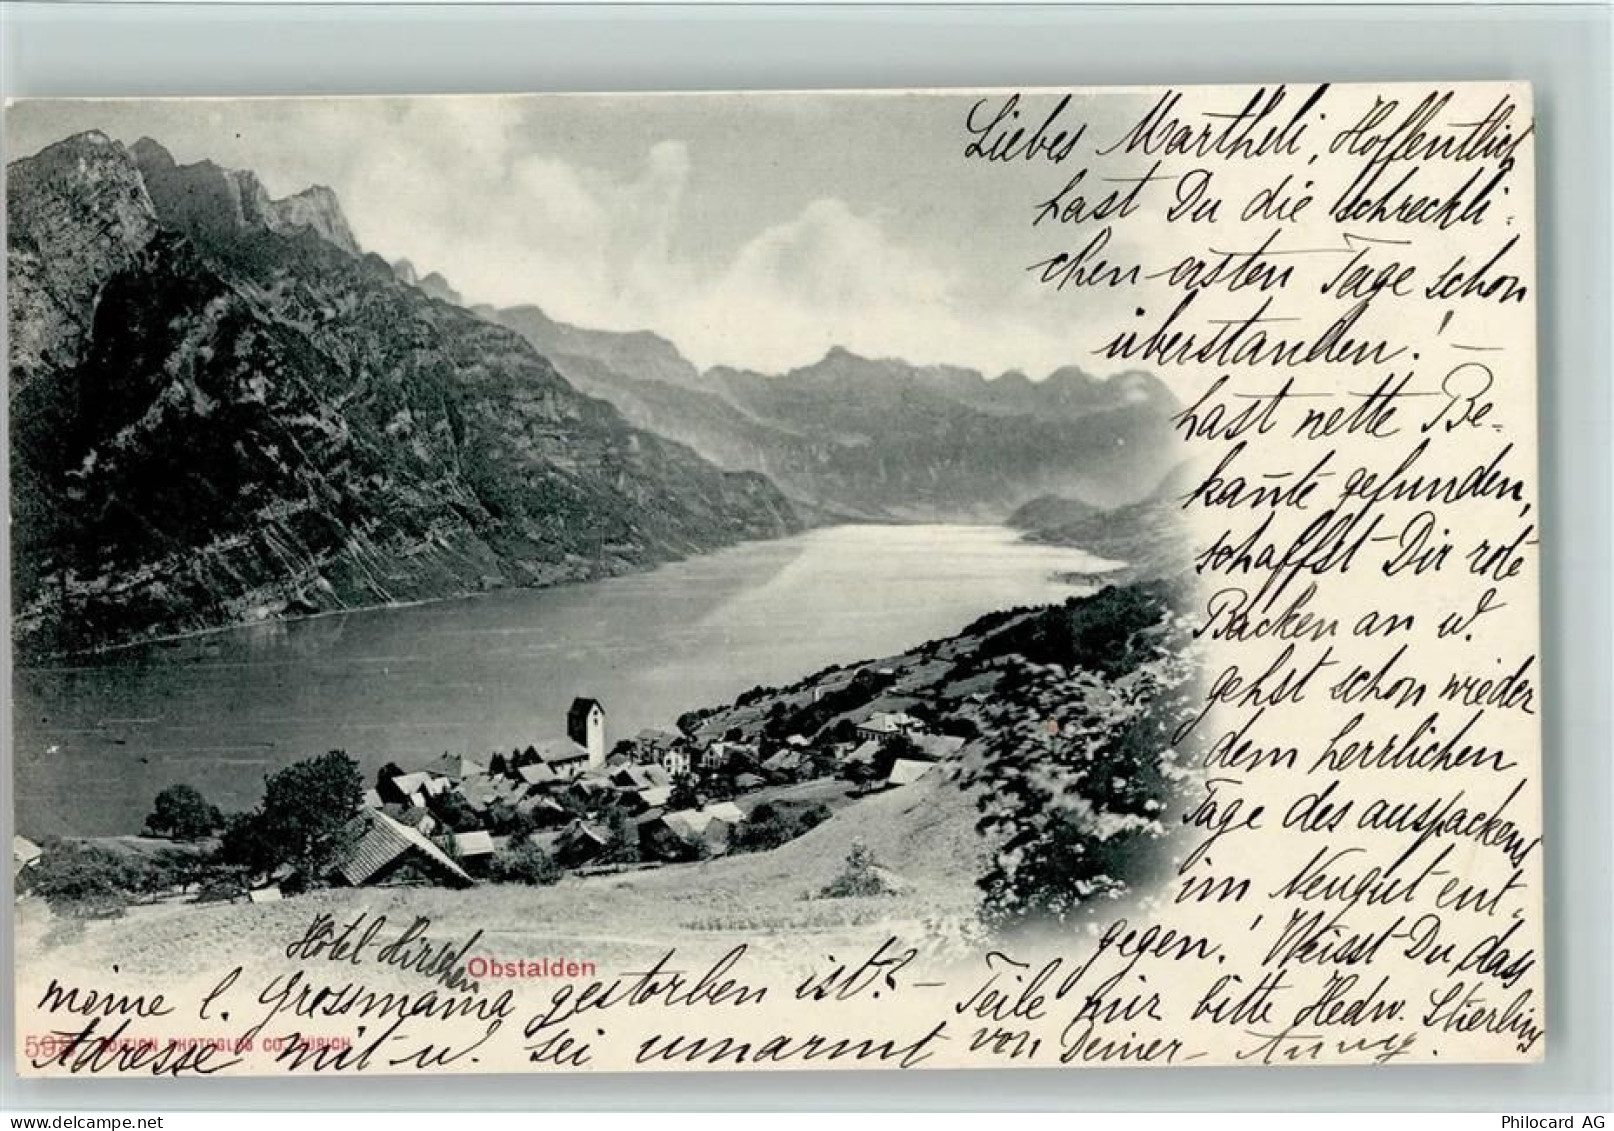 Liebes Martheli, Hoffentlich
hast Du die schreckli-
chen ersten Tage schon
überstanden! —
hast nette Be-
kan̄te gefunden,
schaffst Dir rote
Backen an u.
gehst schon wieder
dem herrlichen
Tage des auspackens
im Neugut ent-
gegen! Weisst Du dass
Hôtel Hirschen
Obstalden
meine l. Grossmama gestorben ist? – Teile mir bitte Hedw. Stierlins
Adresse mit u. sei umarmt von Deiner –
EDITION PHOTOGLOB CO. ZÜRICH
Philocard AG